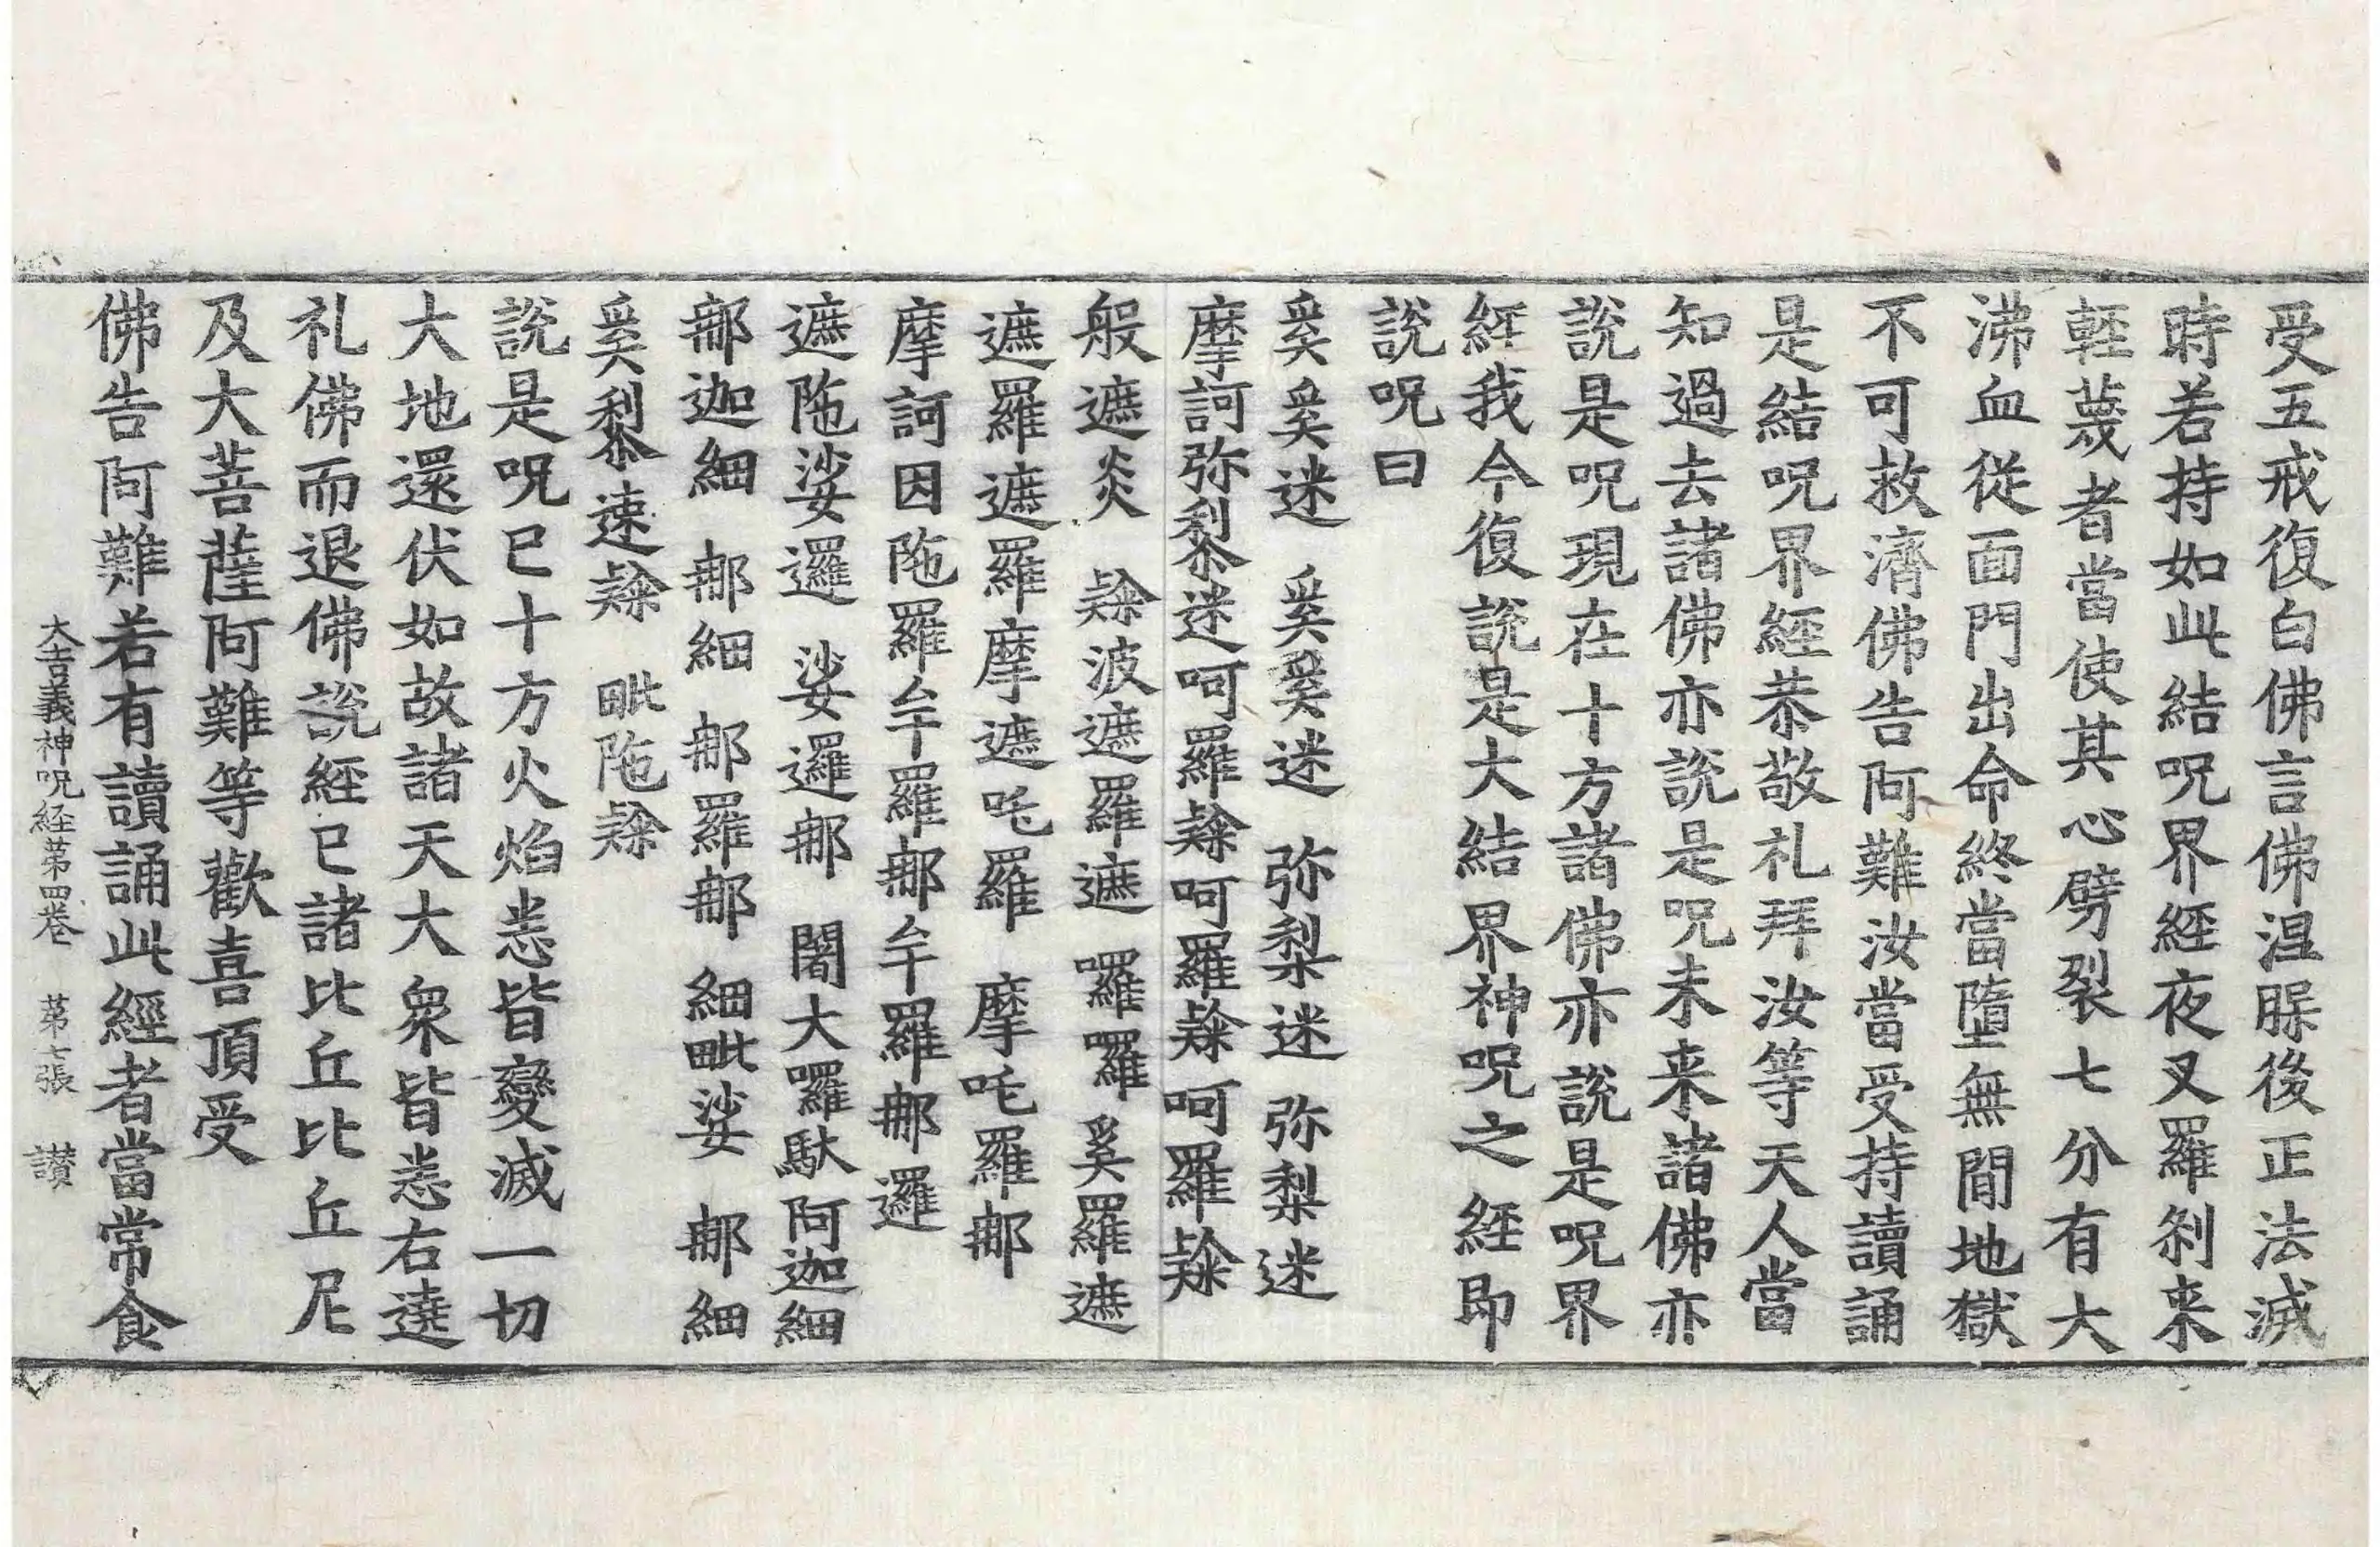 受五戒復白佛言佛涅槃後正法滅
時若持如此結呪界經夜叉羅刹来
輕蔑者當使其心劈裂七分有大
沸血從面門出命終當墮無閒地獄
不可救濟佛告阿難汝當受持讀誦
是結呪界經恭敬礼拜汝等天人當
知過去諸佛亦說是呪未来諸佛亦
說是呪現在十方諸佛亦說是呪界
經我今復說是大結界神呪之經即
說呪曰
奚奚迷 奚奚迷 弥梨迷 弥梨迷
摩訶弥梨迷呵羅隸呵羅隸呵羅隸
般遮炎 隸波遮羅遮 囉囉奚羅遮
遮羅遮羅摩遮吒羅 摩吒羅那
摩訶因陁羅牟羅那牟羅那邏
遮陁娑邏 娑邏那 闍大囉馱阿迦細
那迦細 那細 那羅那 細毗娑 那細
奚梨速隸 毗陁隸
說是呪已十方火焰悉皆變滅一切
大地還伏如故諸天大衆皆悉右遶
礼佛而退佛說經已諸比丘比丘尼
及大菩薩阿難等歡喜頂受
佛告阿難若有讀誦此經者當常食
大吉義神呪経苐四卷 苐七張 讃